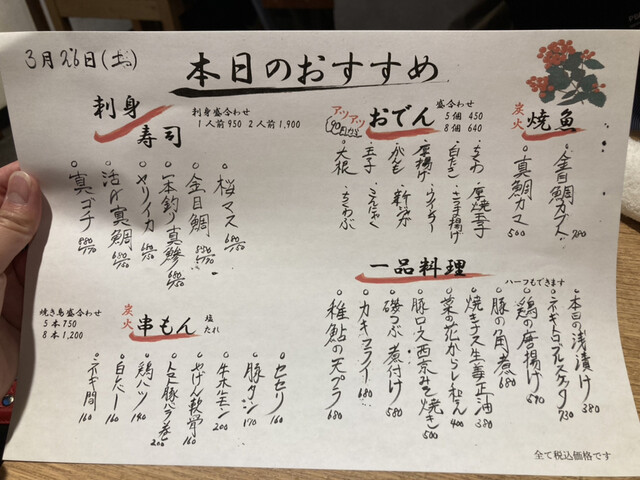 3月26日(土)
本日のおすすめ
刺身
寿司
刺身盛合わせ
1人前950 2人前1,900
桜マス 680/150
金目鯛 880/190
一本釣り真鯵 680/150
ヤリイカ 680/150
活〆真鯛 680/150
真ゴチ 880/190
アツアツ
おでん
盛合わせ
5個 450
8個 640
・ちくわ
・厚焼玉子
・白だき
・ウインナー
・がんも
・玉子
・こんにゃく
・大根
・ちくわぶ
炭火
焼魚
金目鯛カブト 780
真鯛カマ 500
一品料理
ハーフもできます
本日の浅漬け 380
ネギトロブルスケッタ 730
鶏の唐揚げ 590
豚の角煮 680
焼きナス生姜正油 380
菜の花からし和え 400
豚ロス西京みそ焼き 500
磯つぶ煮付け 580
カキフライ 680
稚鮎の天プラ 680
焼き鳥盛合わせ
5本 750
8本 1,200
炭火
串もん
塩
たれ
セセリ 160
豚タン 170
牛ホルモン 200
やげん軟骨 160
トマト豚バラ巻 200
鶏ハツ 140
白レバー 160
ネギ間 160
全て税込価格です